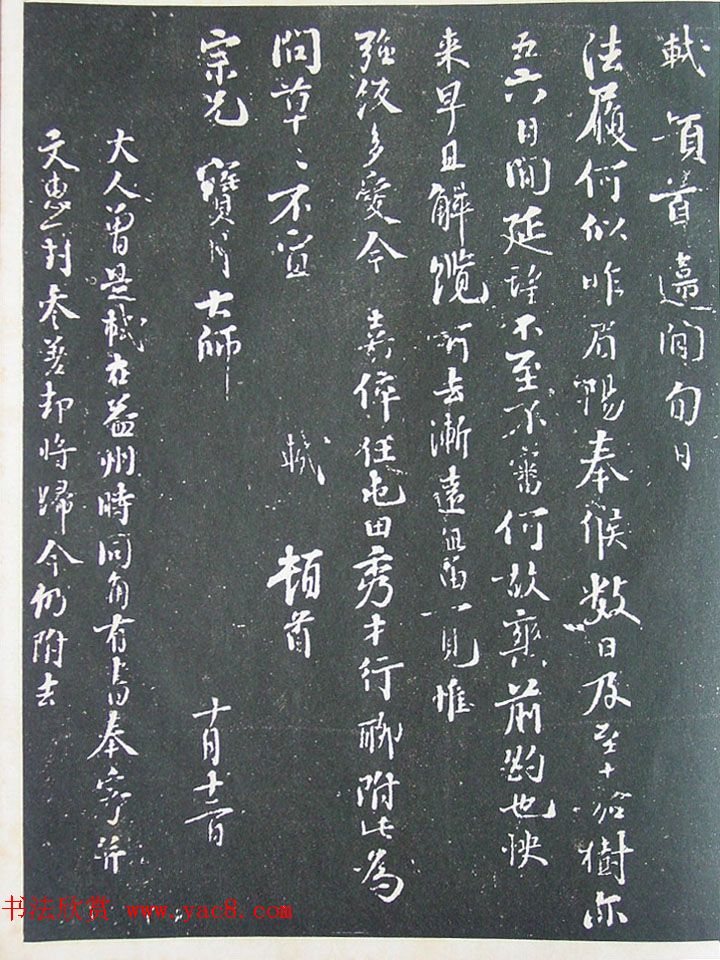 軾頓首違間旬日
法履何似昨眉陽奉候數日及至嘉樹亦
五六日間延望不至不審何故爽前約也怏
來早且解纜前去漸遠無由一見惟
強飯多愛今嘉倅任屯田秀才行聊附此為
問草〻不宣
軾頓首
宗兄寶月大師
十月十二日
大人曾是軾在益州時同角有書奉寄并
文惠一封參差却將歸今仍附去
书法欣赏 www.yac8.com